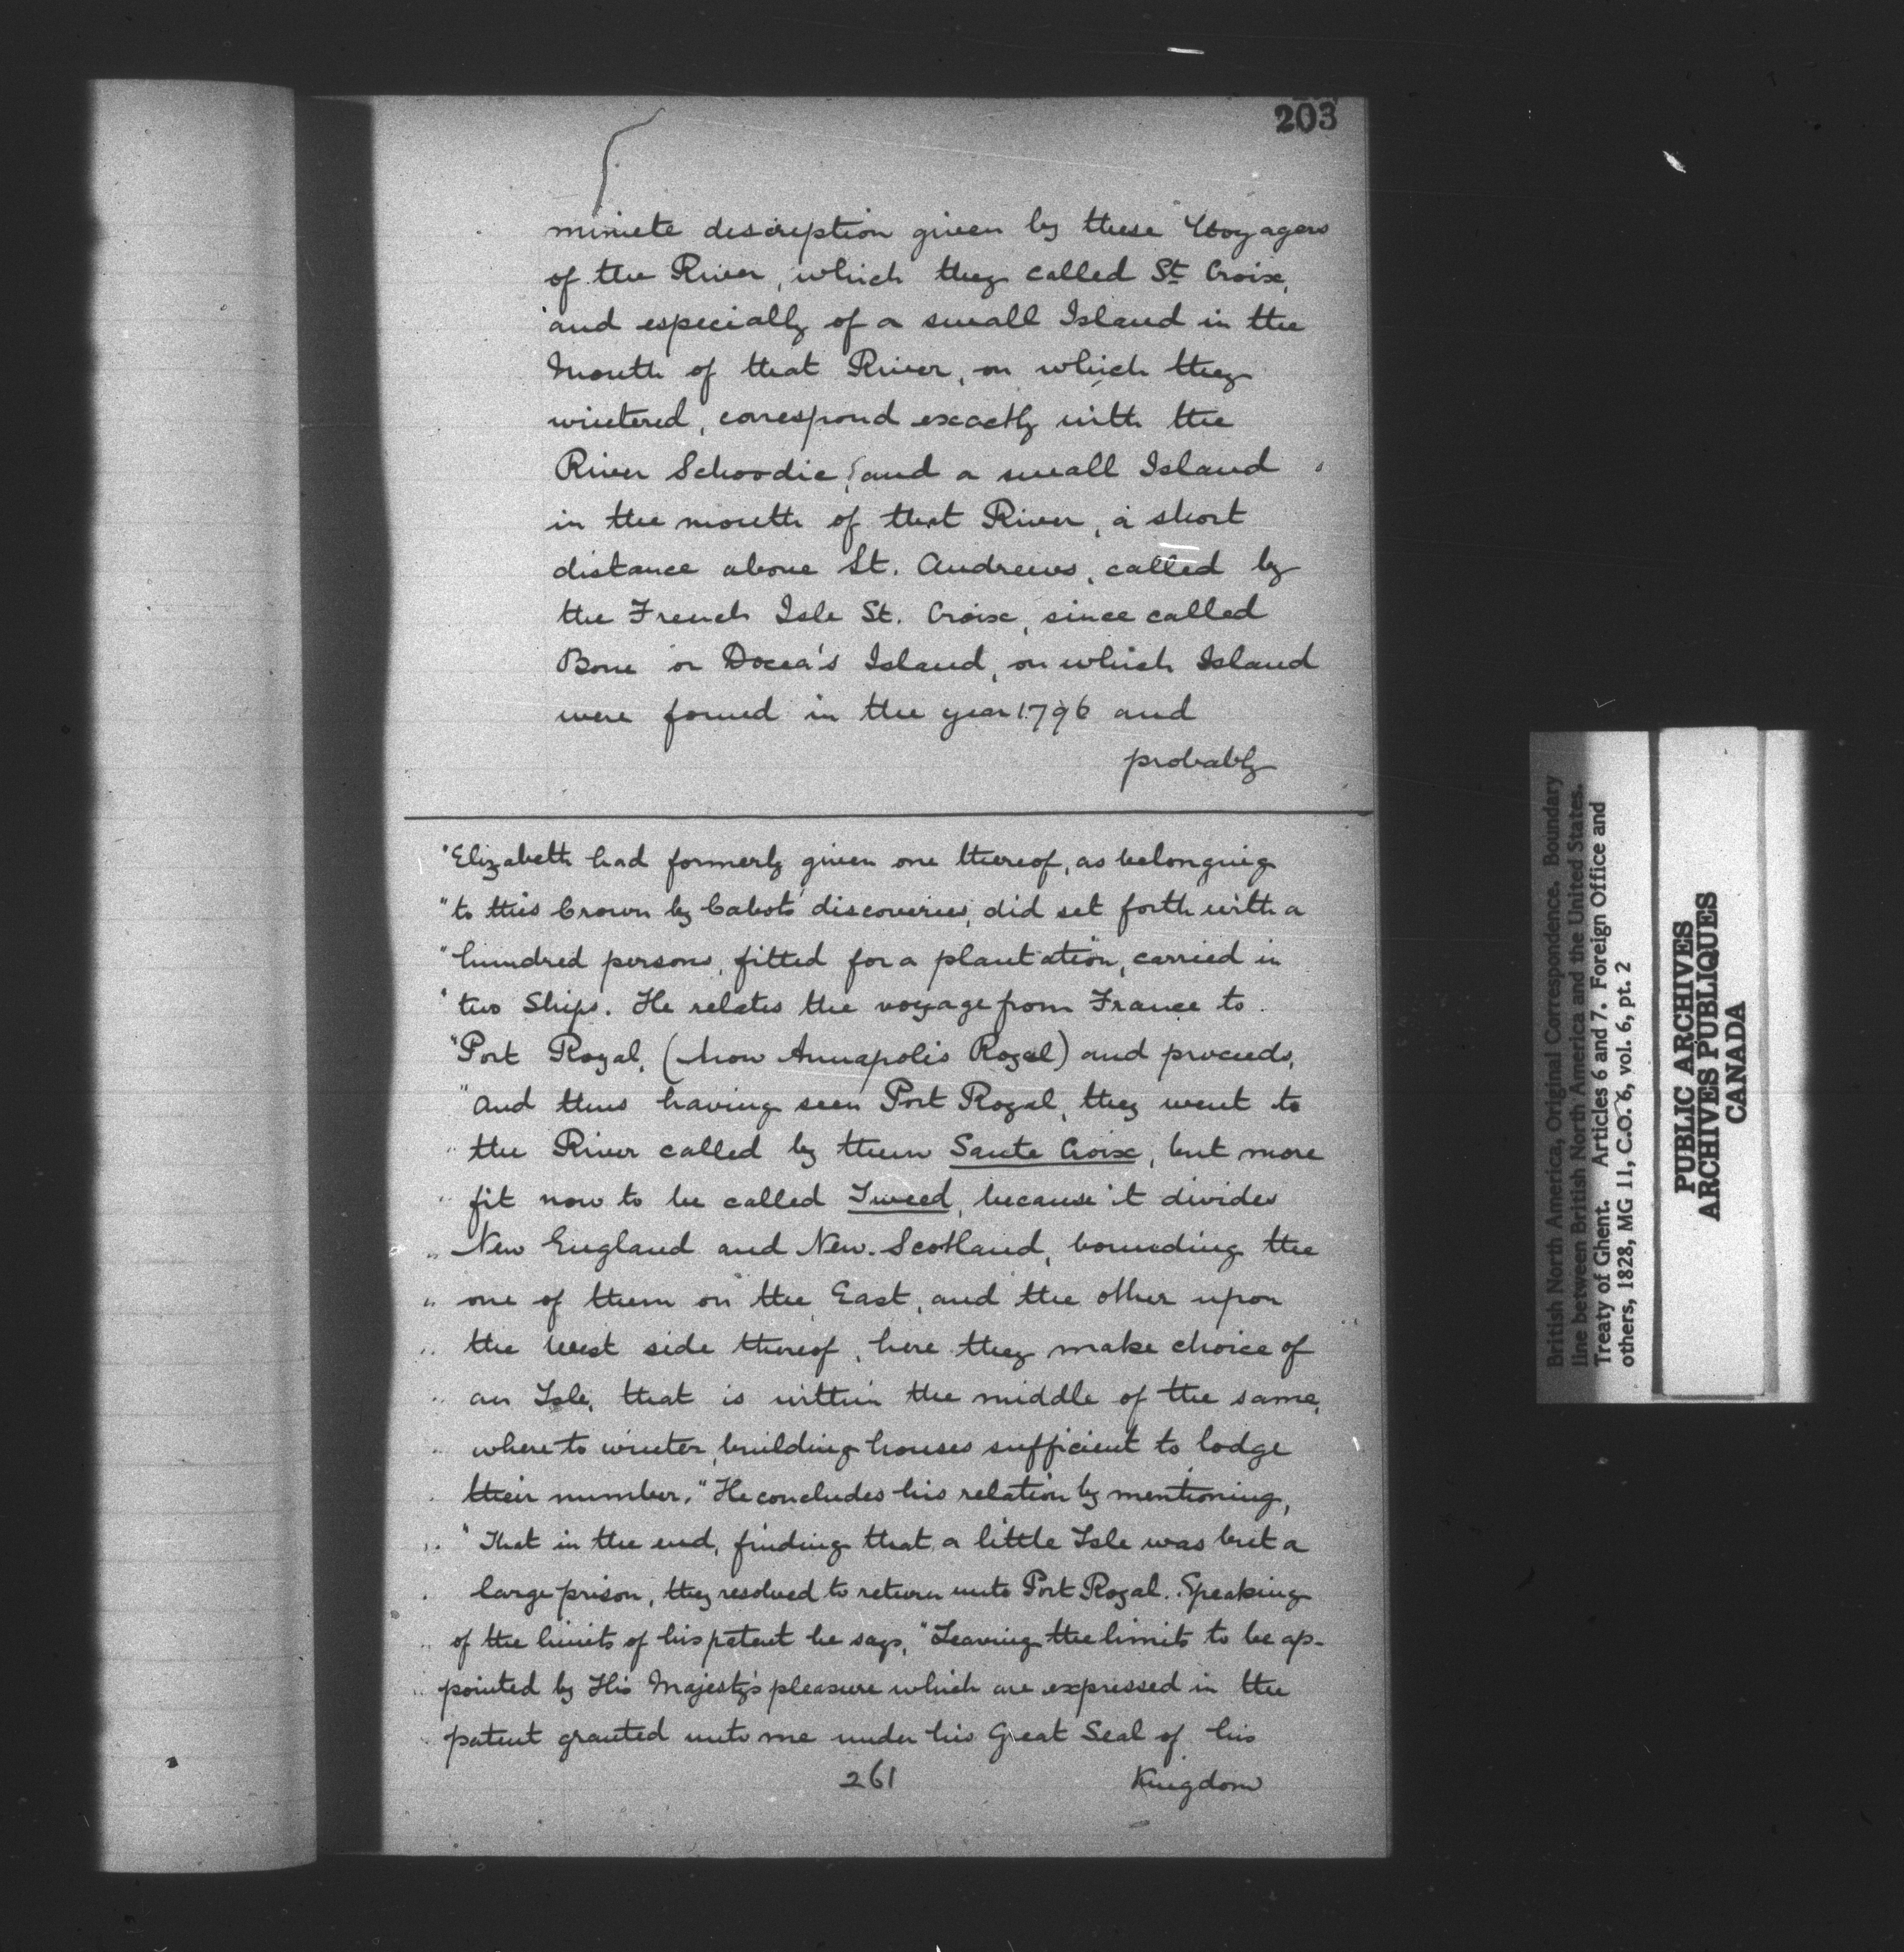 203
minute description given by these Voyagers
of the River, which they called St Croix,
and especially of a small Island in the
Mouth of that River, on which they
wintered, correspond exactly with the
River Schoodic, and a small Island
in the mouth of that River, a short
distance above St. Andrews, called by
the French Isle St. Croix, since called
Bone or Docea's Island, on which Island
were found in the year 1796 and
probably
"Elizabeth had formerly given one thereof, as belonging
"to this Crown by Cabots' discoveries, did set forth with a
"hundred persons, fitted for a plantation, carried in
"two Ships. He relates the voyage from France to
"Port Royal, (now Annapolis Royal) and proceeds,
"and thus having seen Port Royal, they went to
" the River called by them Sante Croix, but more
" fit now to be called Tweed, because it divides
" New England and New Scotland, bounding the
" one of them on the East, and the other upon
" the West side thereof, here they make choice of
" an Isle, that is within the middle of the same,
" where to winter, building houses sufficient to lodge
" their number." He concludes his relation by mentioning,
" "That in the end, finding that a little Isle was but a
" large prison, they resolved to return unto Port Royal. Speaking
" of the limits of his patent he says, "Leaving the limits to be ap-
" pointed by His Majesty's pleasure which are expressed in the
" patent granted unto me under his Great Seal of his
261 Kingdom
British North America, Original Correspondence. Boundary
line between British North America and the United States.
Treaty of Ghent. Articles 6 and 7. Foreign Office and
others, 1828, MG 11, C.O. 6, vol. 6, pt. 2
PUBLIC ARCHIVES
ARCHIVES PUBLIQUES
CANADA